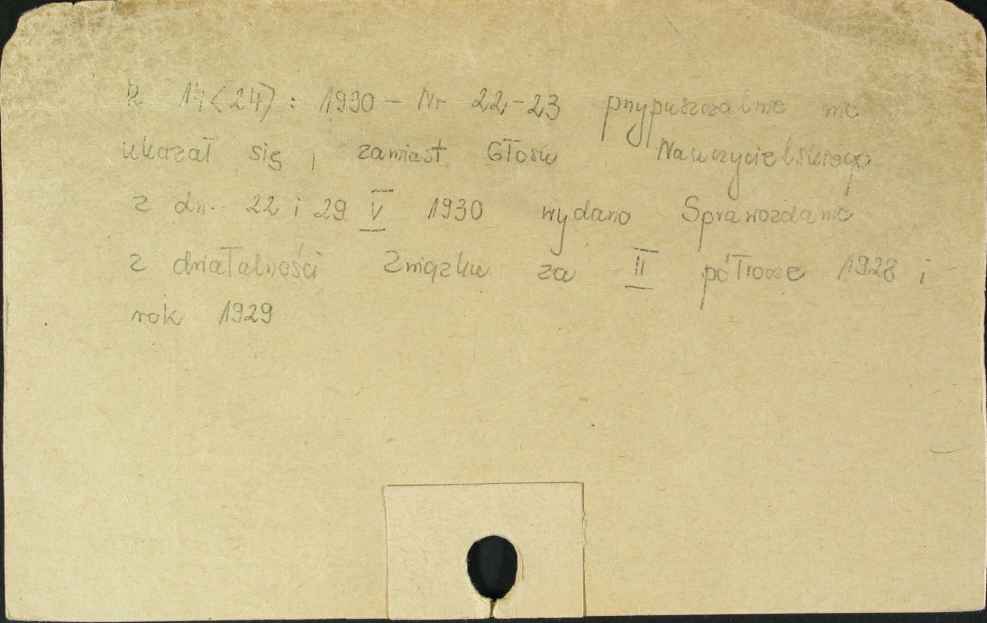 R 14(24): 1930 - Nr 22-23 przypuszczalnie nie
ukazał się, zamiast Głosu Nauczycielskiego
z dn. 22 i 29 V 1930 wydano Sprawozdanie
z działalności Związku za II półrocze 1928 i
rok 1929